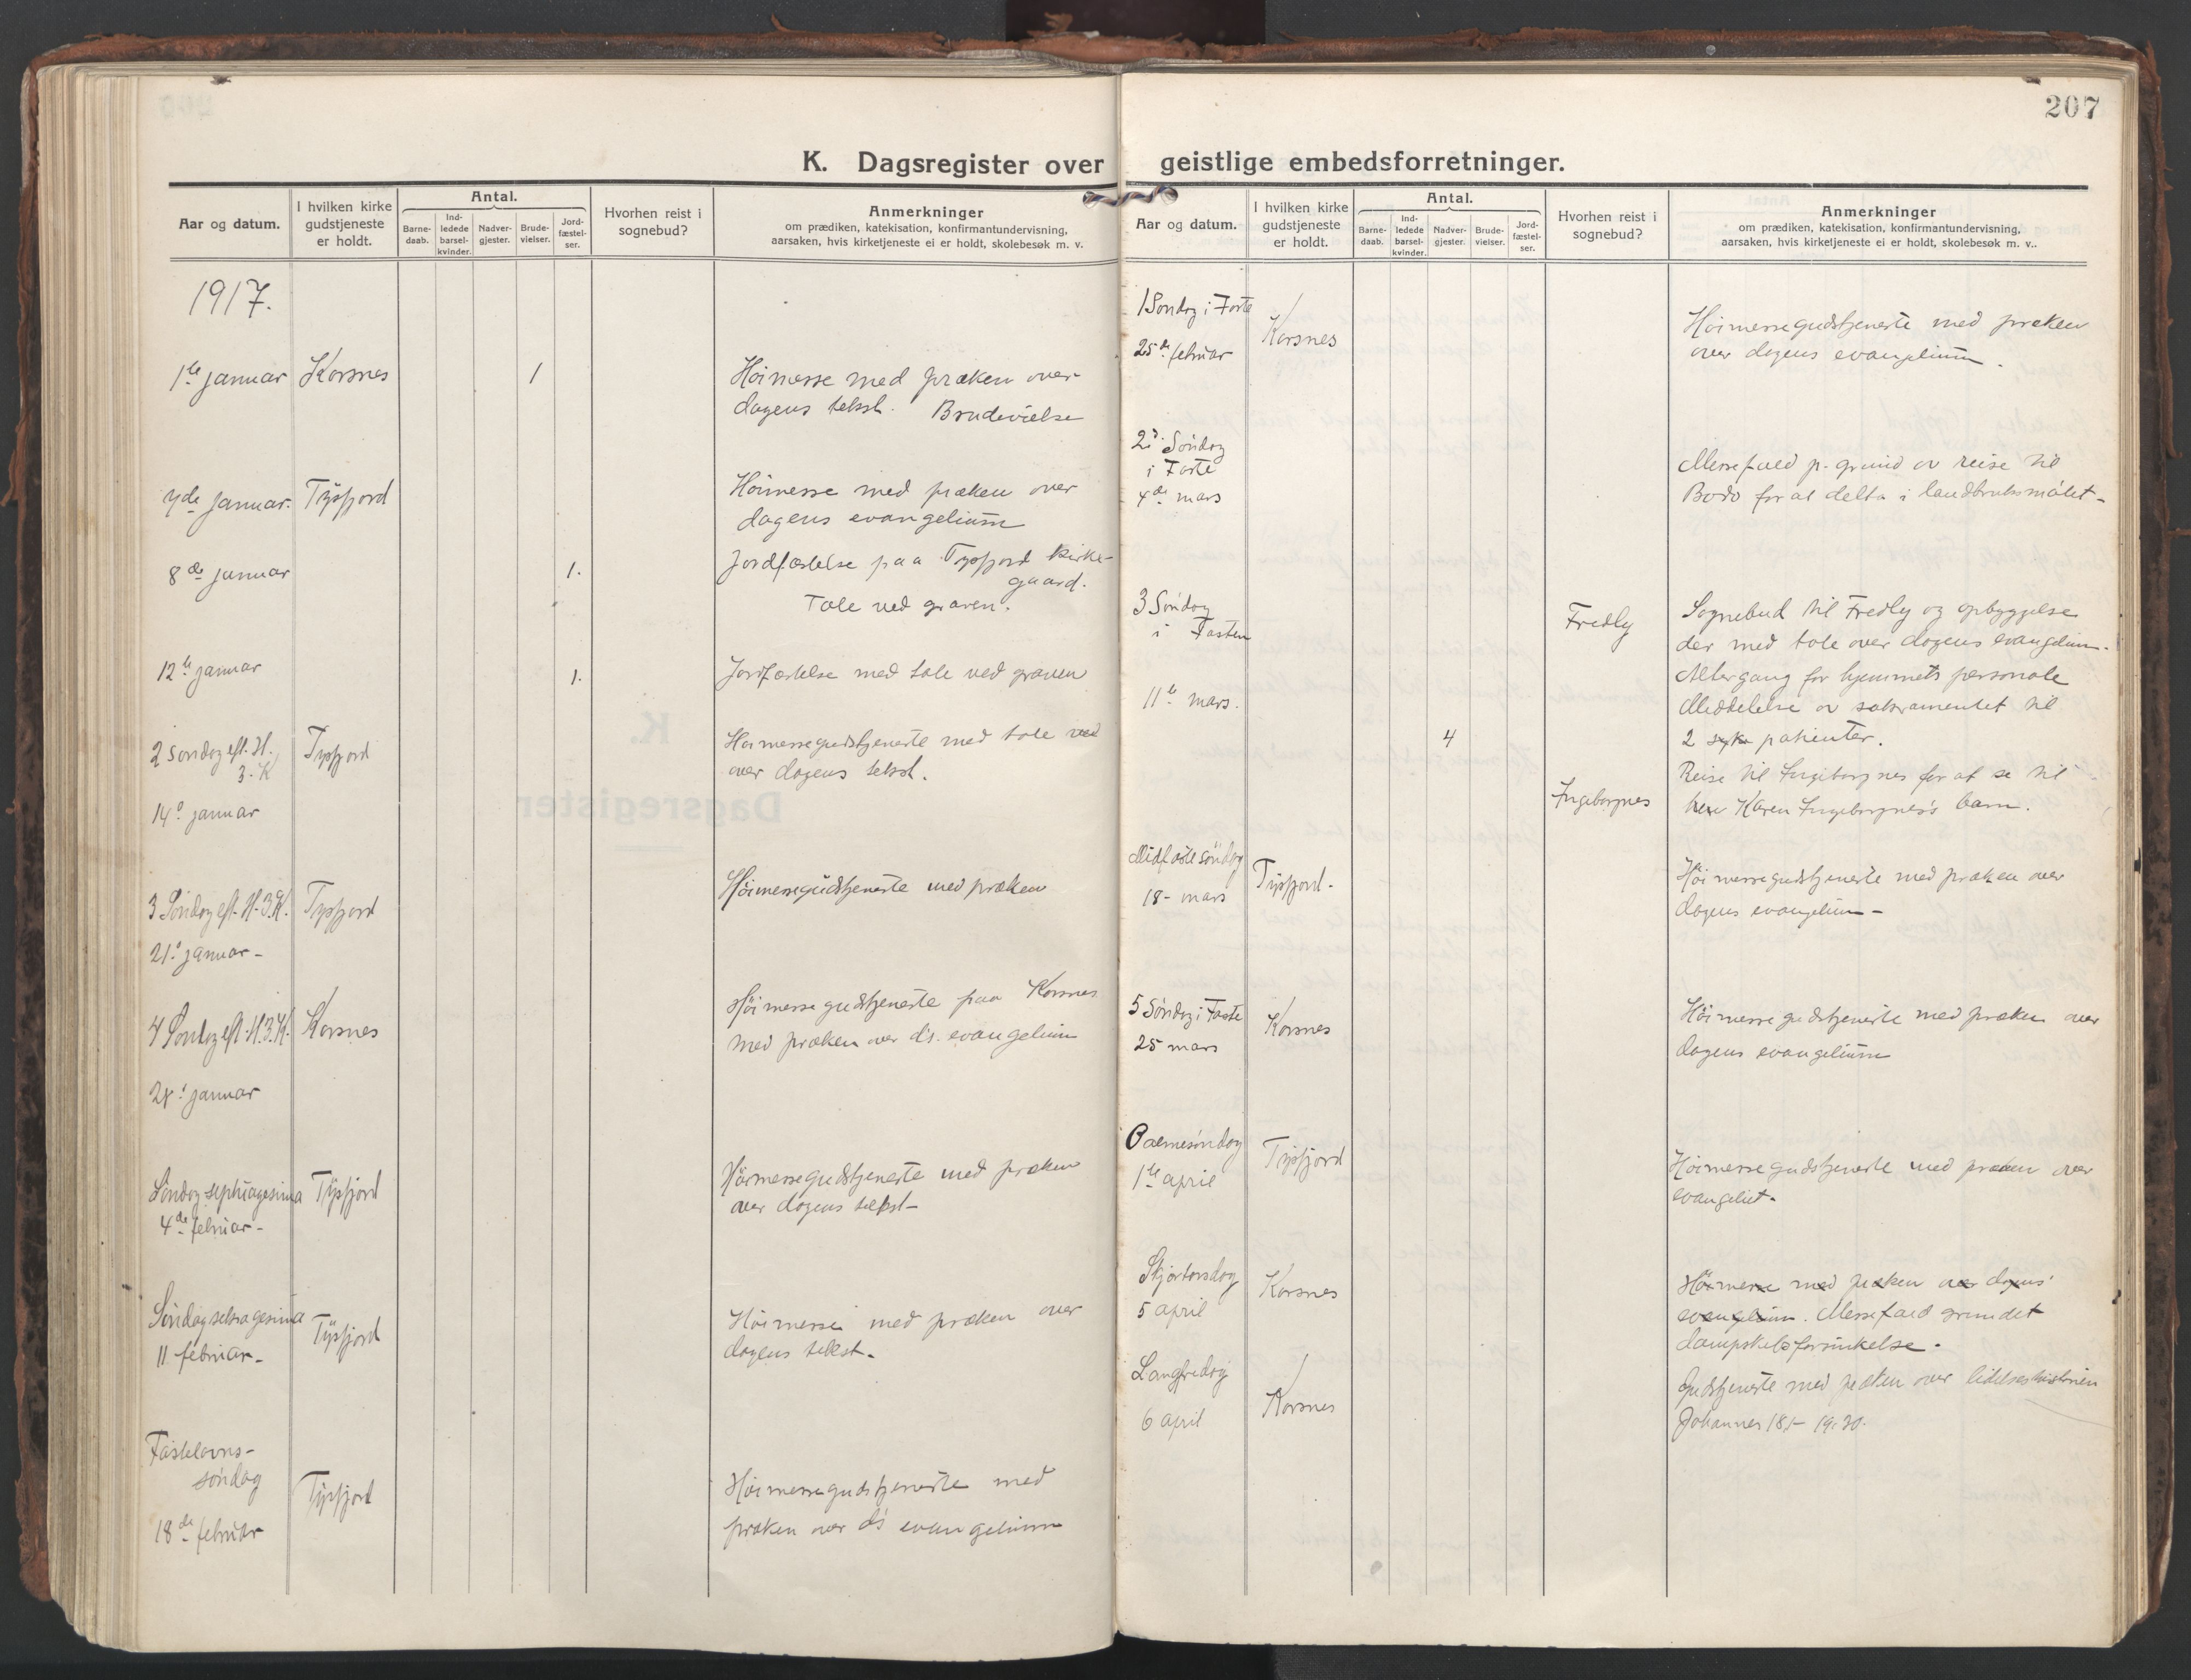 207
K. Dagsregister over geistlige embedsforretninger.
Aar og datum.
I hvilken kirke
gudstjeneste
er holdt.
Antal.
Barne-
daab.
Ind-
ledede
barsel-
kvinder.
Nadver-
gjester.
Brude-
vielser.
Jord-
fæstel-
ser.
Hvorhen reist i
sognebud?
Anmerkninger
om prædiken, katekisation, konfirmantundervisning,
aarsaken, hvis kirketjeneste ei er holdt, skolebesøk m. v.
1917.
1te januar Korsnes 1 Høimesse med præken over
dagens tekst. Brudevielse
7de januar. Tysfjord Høimesse med præken over
dagens evangelium
8de januar 1. Jordfæstelse paa Tysfjord kirke-
gaard.
Tale ved graven.
12te januar 1. Jordfæstelse med tale ved graven
2 søndag eft. H. Tysfjord Høimessegudstjeneste med tale
3. K over dagens tekst.
14. januar
3 Søndag eft. H. 3. K. Tysfjord Høimessegudstjeneste med præken
21. januar -
4 Søndag eft. H. 3. K. Korsnes Høimessegudstjeneste paa Korsnes
med præken over ds. evangelium
28. januar
Søndag septuagesima Tysfjord Høimessegudstjeneste med præken
4de februar - over dagens tekst -
Søndag seksagesima Tysfjord Høimesse med præken over
11 februar - dagens tekst.
Fastelavns-
søndag Tysfjord Høimessegudstjeneste med
18de februar præken over ds evangelium
Aar og datum.
I hvilken kirke
gudstjeneste
er holdt.
Antal.
Barne-
daab.
Ind-
ledede
barsel-
kvinder.
Nadver-
gjester.
Brude-
vielser.
Jord-
fæstel-
ser.
Hvorhen reist i
sognebud?
Anmerkninger
om prædiken, katekisation, konfirmantundervisning,
aarsaken, hvis kirketjeneste ei er holdt, skolebesøk m. v..
1 Søndag i Faste Korsnes Høimessegudstjeneste med præken
25de februar over dagens evangelium.
2d Søndag
i Faste Messefald p. grund av reise til
4de mars Bodø for at delta i landbruksmøtet -
3 Søndag Fredly Sognebud til Fredly og opbyggelse
i Fasten der med tale over dagens evangelium.
Altergang for hjemmets personale
11te mars. Meddelelse av sakramentet til
4 2 syke patienter.
Reise til Ingeborgnes for at se til
Ingeborgnes Karen Ingeborgnes's barn.
Midfastesøndag Tysfjord. Høimessegudstjeneste med præken over
18 - mars dagens evangelium -
5 Søndag i Faste Korsnes Høimessegudstjeneste med præken over
25 mars dagens evangelium
Palmesøndag Tysfjord Høimessegudstjeneste med præken over
1te april evangeliet.
Skjærtorsdag Korsnes Høimesse med præken over dagens
5 april evangelium. Messefald grundet
dampskibsforsinkelse.
Langfredag Korsnes Gudstjeneste med præken over lidelseshistorien
6 april Johannes 18,1- 19:30.